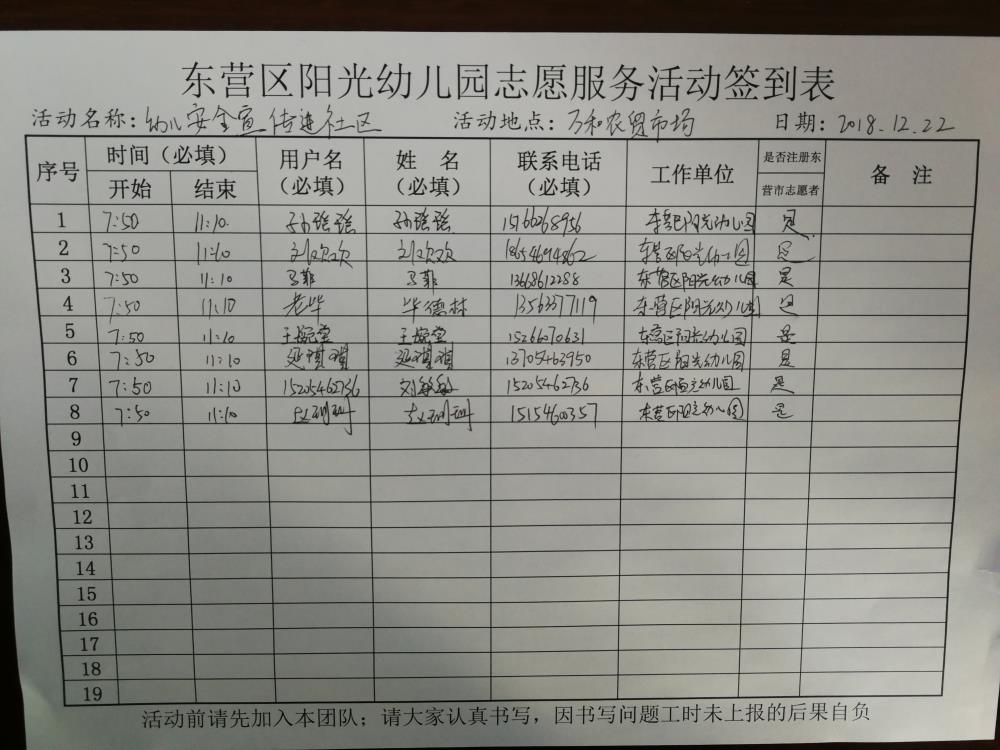 东营区阳光幼儿园志愿服务活动签到表
活动名称：幼儿安全宣传进社区 活动地点：万和农贸市场 日期：2018.12.22
序号 时间（必填） 用户名（必填） 姓 名（必填） 联系电话（必填） 工作单位 是否注册东营市志愿者 备 注
开始 结束
1 7:50 11:10 孙瑶瑶 孙瑶瑶 15166268956 东营区阳光幼儿园 是
2 7:50 11:10 刘欢欢 刘欢欢 18654694862 东营区阳光幼儿园 是
3 7:50 11:10 马菲 马菲 13668612288 东营区阳光幼儿园 是
4 7:50 11:10 老毕 毕德林 13563377119 东营区阳光幼儿园 是
5 7:50 11:10 15266670631 东营区阳光幼儿园 是
6 7:50 11:10 13705463950 东营区阳光幼儿园 是
7 7:50 11:10 15205462736 刘敏敏 15205462736 东营区阳光幼儿园 是
8 7:50 11:10 赵珂珂 赵珂珂 1515460357 东营区阳光幼儿园 是
9
10
11
12
13
14
15
16
17
18
19
活动前请先加入本团队；请大家认真书写，因书写问题工时未上报的后果自负